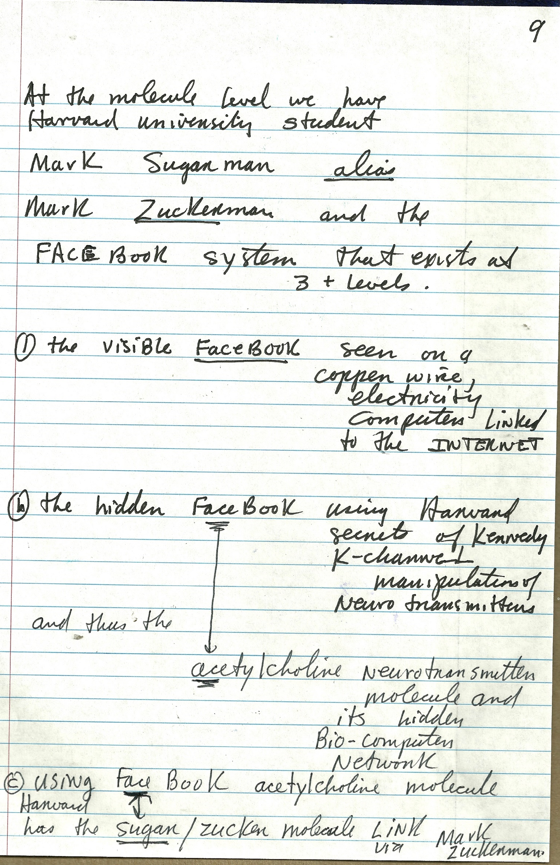 9
At the molecule level we have
Harvard university student
Mark Sugarman alias
Mark Zuckerman and the
FACEBOOK system that exists at
3 + levels.
① the visible FaceBOOK seen on a
copper wire,
electricity
computer linked
to the INTERNET
ⓑ the hidden FaceBook using Harvard
secrets of Kennedy
K-channel
manipulation of
Neurotransmitters
and thus the
acetylcholine Neurotransmitter
molecule and
its hidden
Bio-computer
Network
ⓒ using Face Book acetylcholine molecule
Harvard
has the sugar/zucker molecule Link
via Mark
Zuckerman.